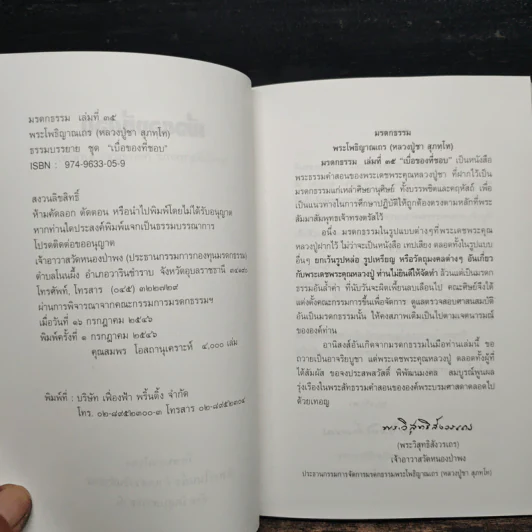 มรดกธรรม เล่มที่ ๓๕
พระโพธิญาณเถร (หลวงปู่ชา สุภทฺโท)
ธรรมบรรยาย ชุด "เบื่อของที่ชอบ"
ISBN : 974-9633-05-9
สงวนลิขสิทธิ์
ห้ามคัดลอก ตัดตอน หรือนำไปพิมพ์โดยไม่ได้รับอนุญาต
หากท่านใดประสงค์พิมพ์แจกเป็นธรรมบรรณาการ
โปรดติดต่อขออนุญาต
เจ้าอาวาสวัดหนองป่าพง (ประธานกรรมการกองทุนมรดกธรรม)
ตำบลโนนผึ้ง อำเภอวารินชำราบ จังหวัดอุบลราชธานี
โทรศัพท์, โทรสาร (๐๔๕) ๓๒๒๗๒๙
ผ่านการพิจารณาจากคณะกรรมการมรดกธรรมฯ
เมื่อวันที่ ๑๖ กรกฎาคม ๒๕๔๖
พิมพ์ครั้งที่ ๑ กรกฎาคม ๒๕๔๖
คุณสมพร โอสถานุเคราะห์ ๔,๐๐๐ เล่ม
พิมพ์ที่ : บริษัท เฟื่องฟ้า พริ้นติ้ง จำกัด
โทร. ๐๒-๘๙๕๒๓๐๐-๓ โทรสาร ๐๒-๘๙๕๒๓๐๔
มรดกธรรม
พระโพธิญาณเถร (หลวงปู่ชา สุภทฺโท)
มรดกธรรม เล่มที่ ๓๕ "เบื่อของที่ชอบ" เป็นหนังสือ
พระธรรมคำสอนของพระเดชพระคุณหลวงปู่ชา ที่ฝากไว้เป็น
มรดกธรรมแก่เหล่าศิษยานุศิษย์ ทั้งบรรพชิตและคฤหัสถ์ เพื่อ
เป็นแนวทางในการศึกษาปฏิบัติให้ถูกต้องตรงตามหลักที่พระ
สัมมาสัมพุทธเจ้าทรงตรัสไว้
อนึ่ง มรดกธรรมในรูปแบบต่างๆที่พระเดชพระคุณ
หลวงปู่ฝากไว้ ไม่ว่าจะเป็นหนังสือ เทปเสียง ตลอดทั้งในรูปแบบ
อื่นๆ ยกเว้นรูปหล่อ รูปเหรียญ หรือวัตถุมงคลต่างๆ อันเกี่ยว
กับพระเดชพระคุณหลวงปู่ ท่านไม่ยินดีให้จัดทำ ล้วนแต่เป็นมรดก
ธรรมอันล้ำค่า ที่นับวันจะผิดเพี้ยนลบเลือนไป คณะศิษย์จึงได้
แต่งตั้งคณะกรรมการขึ้นเพื่อจัดการ ดูแลตรวจสอบศาสนสมบัติ
อันเป็นมรดกธรรมนั้น ให้คงสภาพเดิมเป็นไปตามเจตนารมณ์
ขององค์ท่าน
อานิสงส์อันเกิดจากมรดกธรรมในมือท่านเล่มนี้ ขอ
ถวายเป็นอาจริยบูชา แด่พระเดชพระคุณหลวงปู่ ตลอดทั้งผู้ที่
ได้สัมผัส ขอจงประสพสวัสดิ์ พิพัฒนมงคล สมบูรณ์พูนผล
รุ่งเรืองในพระสัทธรรมคำสอนขององค์พระบรมศาสดาตลอดไป
ด้วยเทอญ
พระวิสุทธิสังวรเถร
(พระวิสุทธิสังวรเถร)
เจ้าอาวาสวัดหนองป่าพง
ประธานกรรมการจัดการมรดกธรรมพระโพธิญาณเถร (หลวงปู่ชา สุภทฺโท)